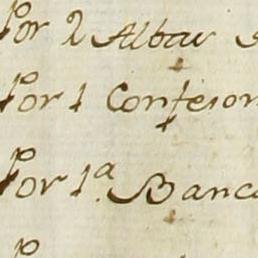 Por 2 Albav
Por 1 Confesion
Por 1ª Banc